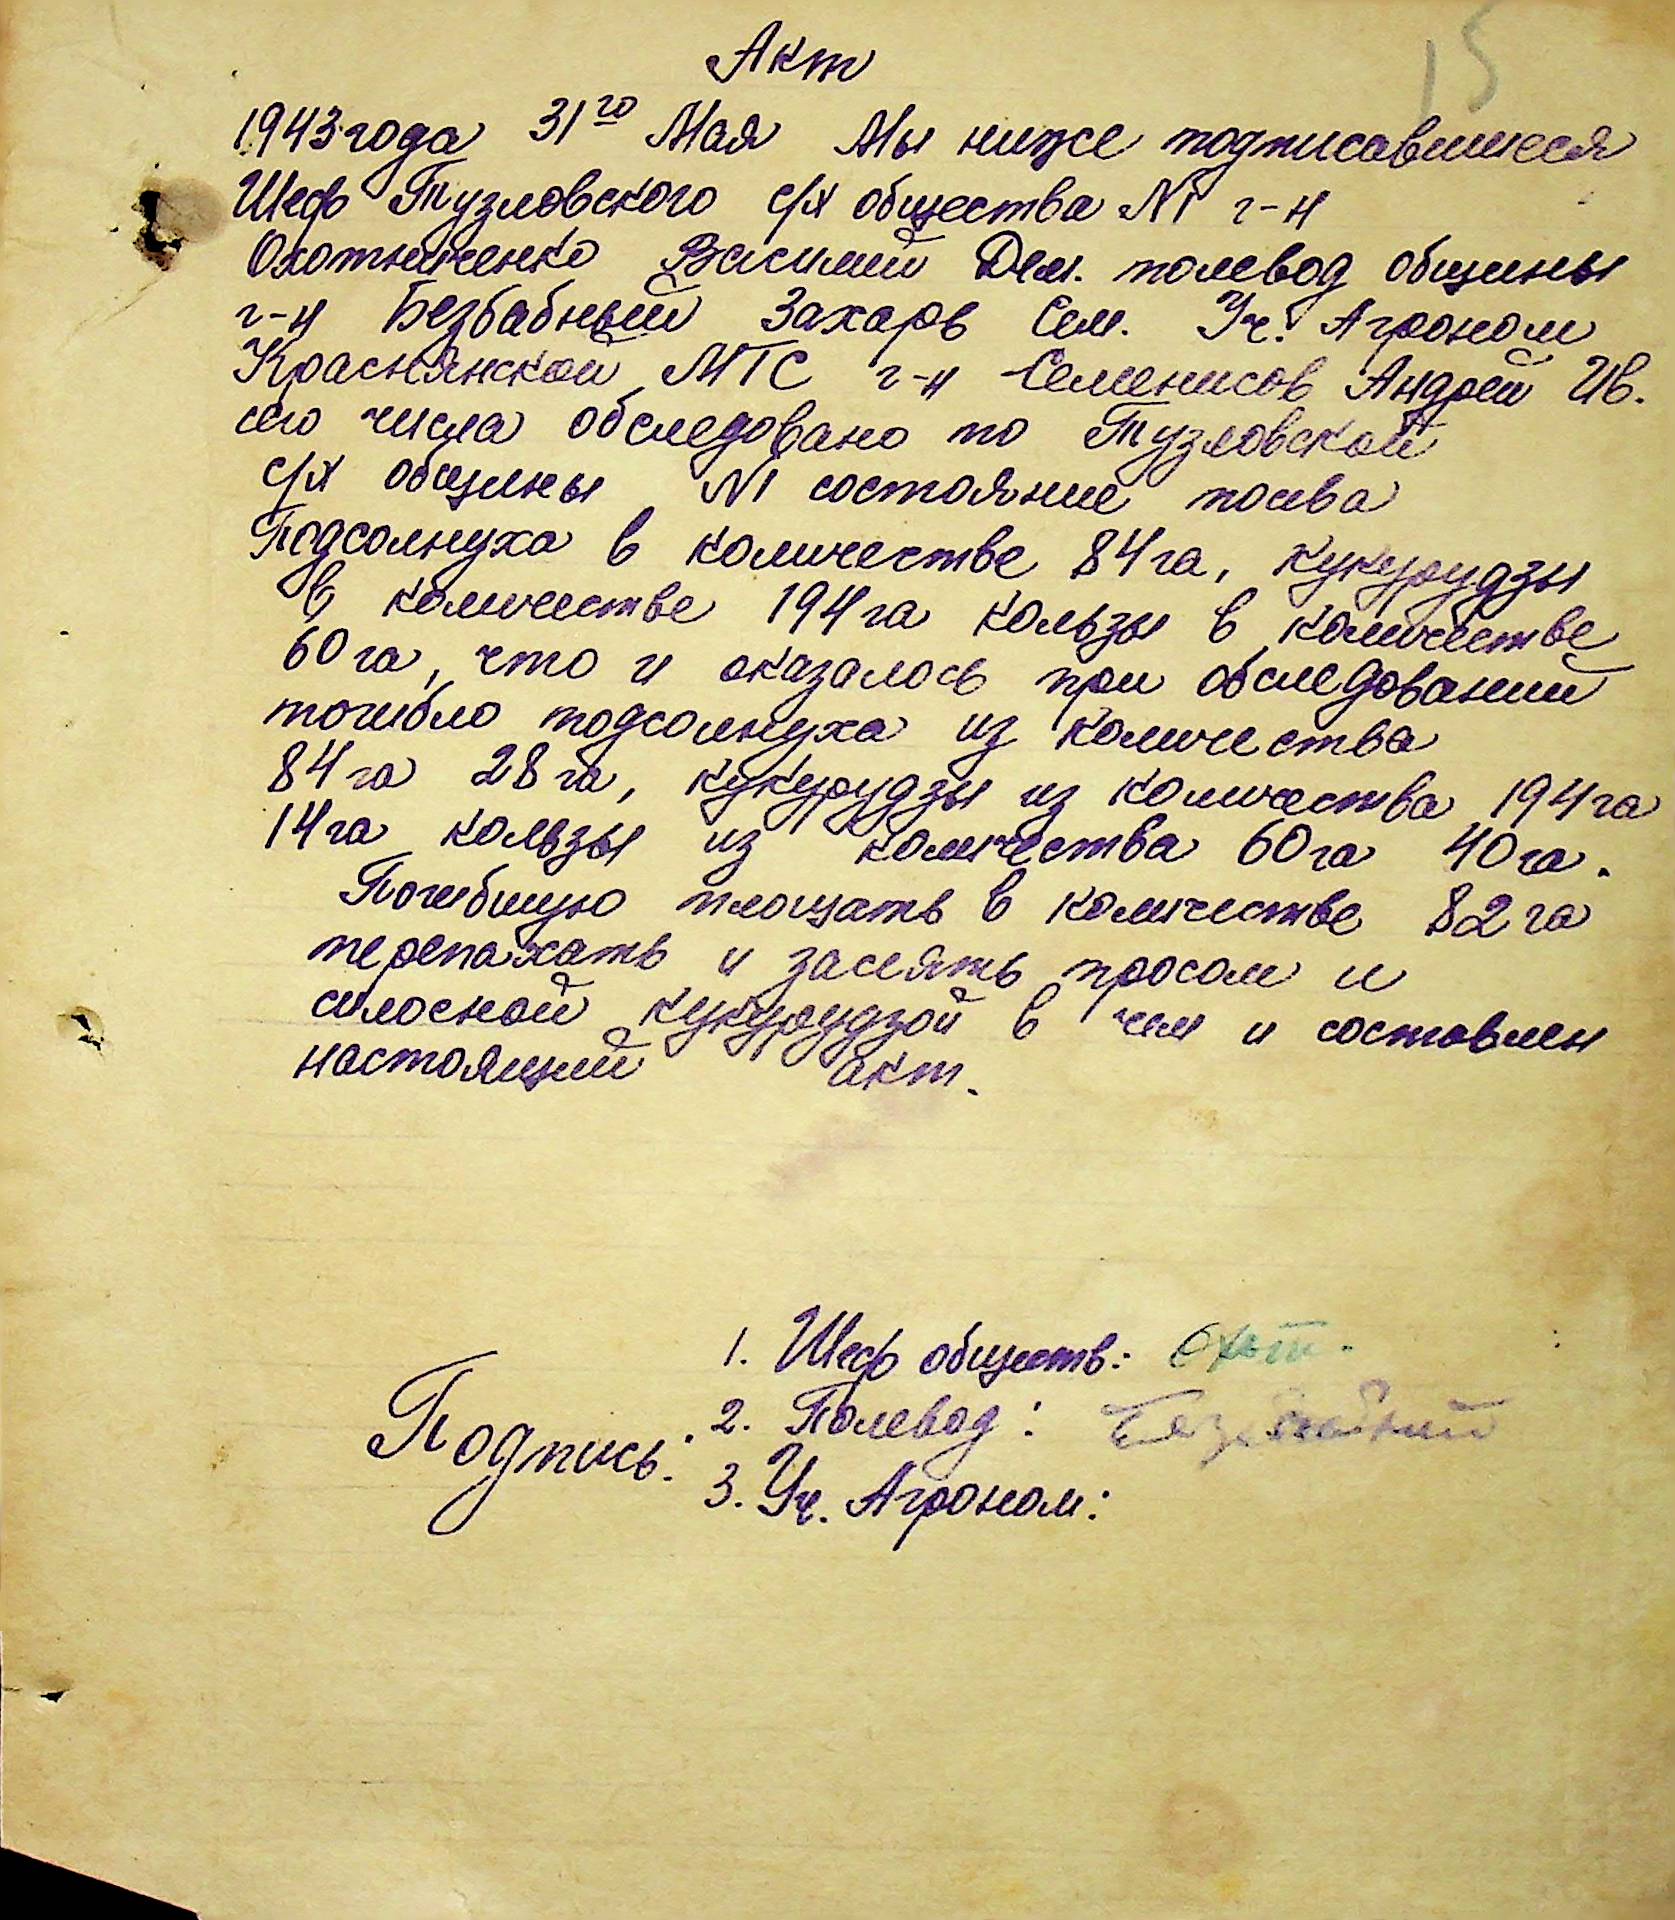 15
Акт
1943 года 31го Мая Мы ниже подписавшиеся
Шеф Тузловского с/х общества N1 г-н
Охотниченко Василий Дем. полевод общины
г-н Безбабный Захарь Сем. Уч. Агроном
Краснянской МТС г-н Семенисов Андрей Ив.
сего числа обследовано по Тузловской
с/х общины N1 состояние посева
Подсолнуха в количестве 84 га, кукурудзы
в количестве 194 га кользы в количестве
60 га, что и оказалось при обследований
погибло подсолнуха из количества
84 га 28 га, кукурудзы из количества 194 га
14 га кользы из количества 60 га 40 га.
Погибшую площать в количестве 82 га
перепахать и засеять просом и
силосной кукурудзой в чем и составлен
настоящий акт.
1. Шеф обществ: Охот.
Подпись: 2. Полевод: Безбабный
3. Уч. Агроном: